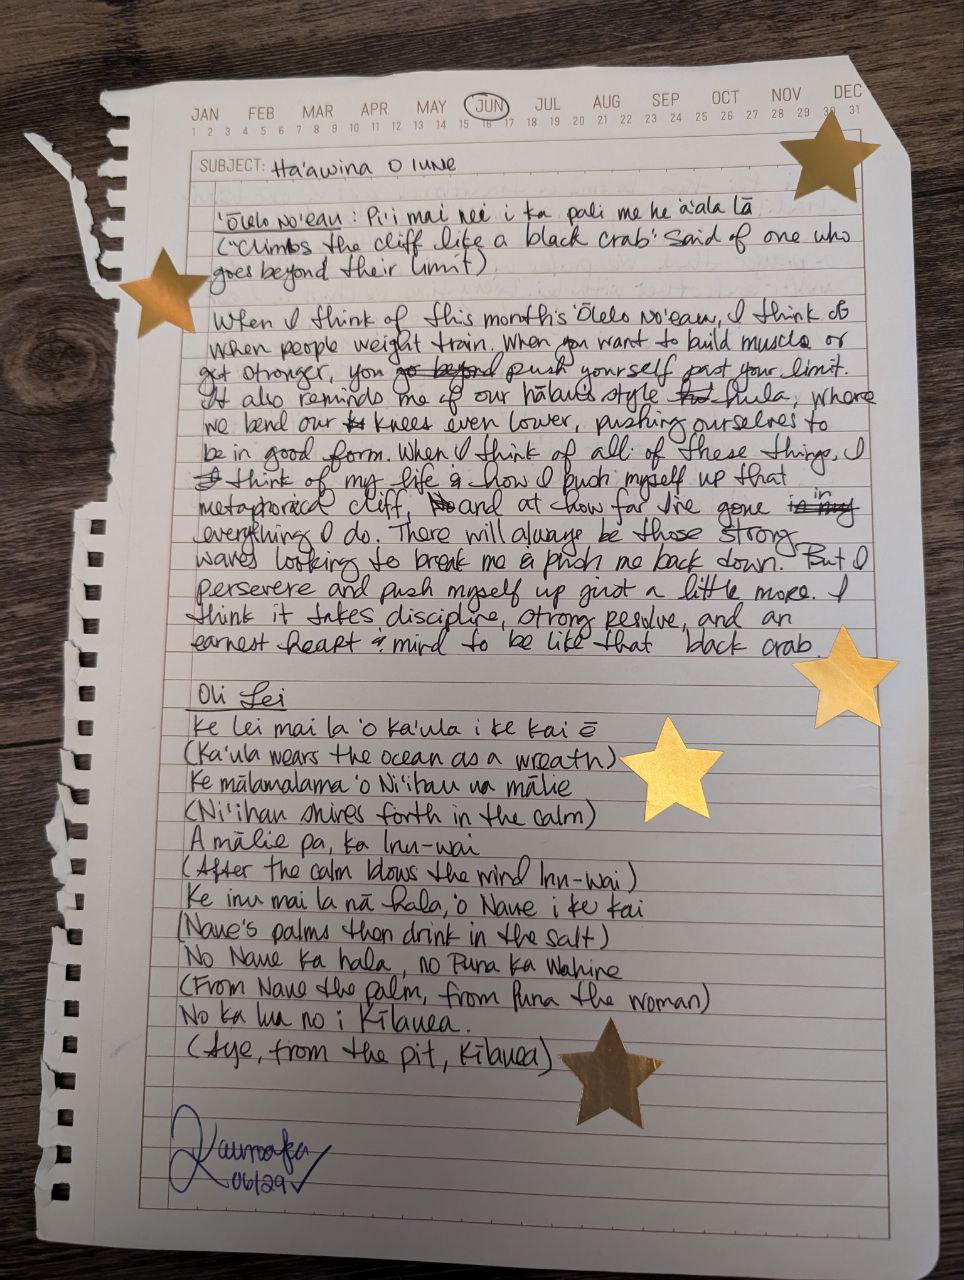 JAN FEB MAR APR MAY JUN JUL AUG SEP OCT NOV DEC
1 2 3 4 5 6 7 8 9 10 11 12 13 14 15 16 17 18 19 20 21 22 23 24 25 26 27 28 29 30 31
SUBJECT: Ha'awina O Iune
'Ōlelo No'eau: Pi'i mai nei i ka pali me he 'a'ala lā
("Climbs the cliff like a black crab" said of one who
goes beyond their limit)
When I think of this month's 'Ōlelo No'eau, I think of
when people weight train. When you want to build muscle or
get stronger, you go beyond push yourself past your limit.
It also reminds me of our hālau's style hula, where
we bend our knees even lower, pushing ourselves to
be in good form. When I think of all of these things, I
think of my life & how I push myself up that
metaphorical cliff, and at how far I've gone in
everything I do. There will always be those strong
waves looking to break me & push me back down. But I
persevere and push myself up just a little more. I
think it takes discipline, strong resolve, and an
earnest heart & mind to be like that black crab.
Oli Lei
Ke lei mai la 'o Ka'ula i ke kai ē
(Ka'ula wears the ocean as a wreath)
Ke mālamalama 'o Ni'ihau ua mālie
(Ni'ihau shines forth in the calm)
A mālie pa, ka Inu-wai
(After the calm blows the wind Inu-wai)
Ke inu mai la nā hala, 'o Naue i ke kai
(Naue's palms then drink in the salt)
No Naue ka hala, no Puna ka wahine
(From Naue the palm, from Puna the woman)
No ka lua no i Kīlauea.
(Aye, from the pit, Kīlauea)
Kaumaka
06/29